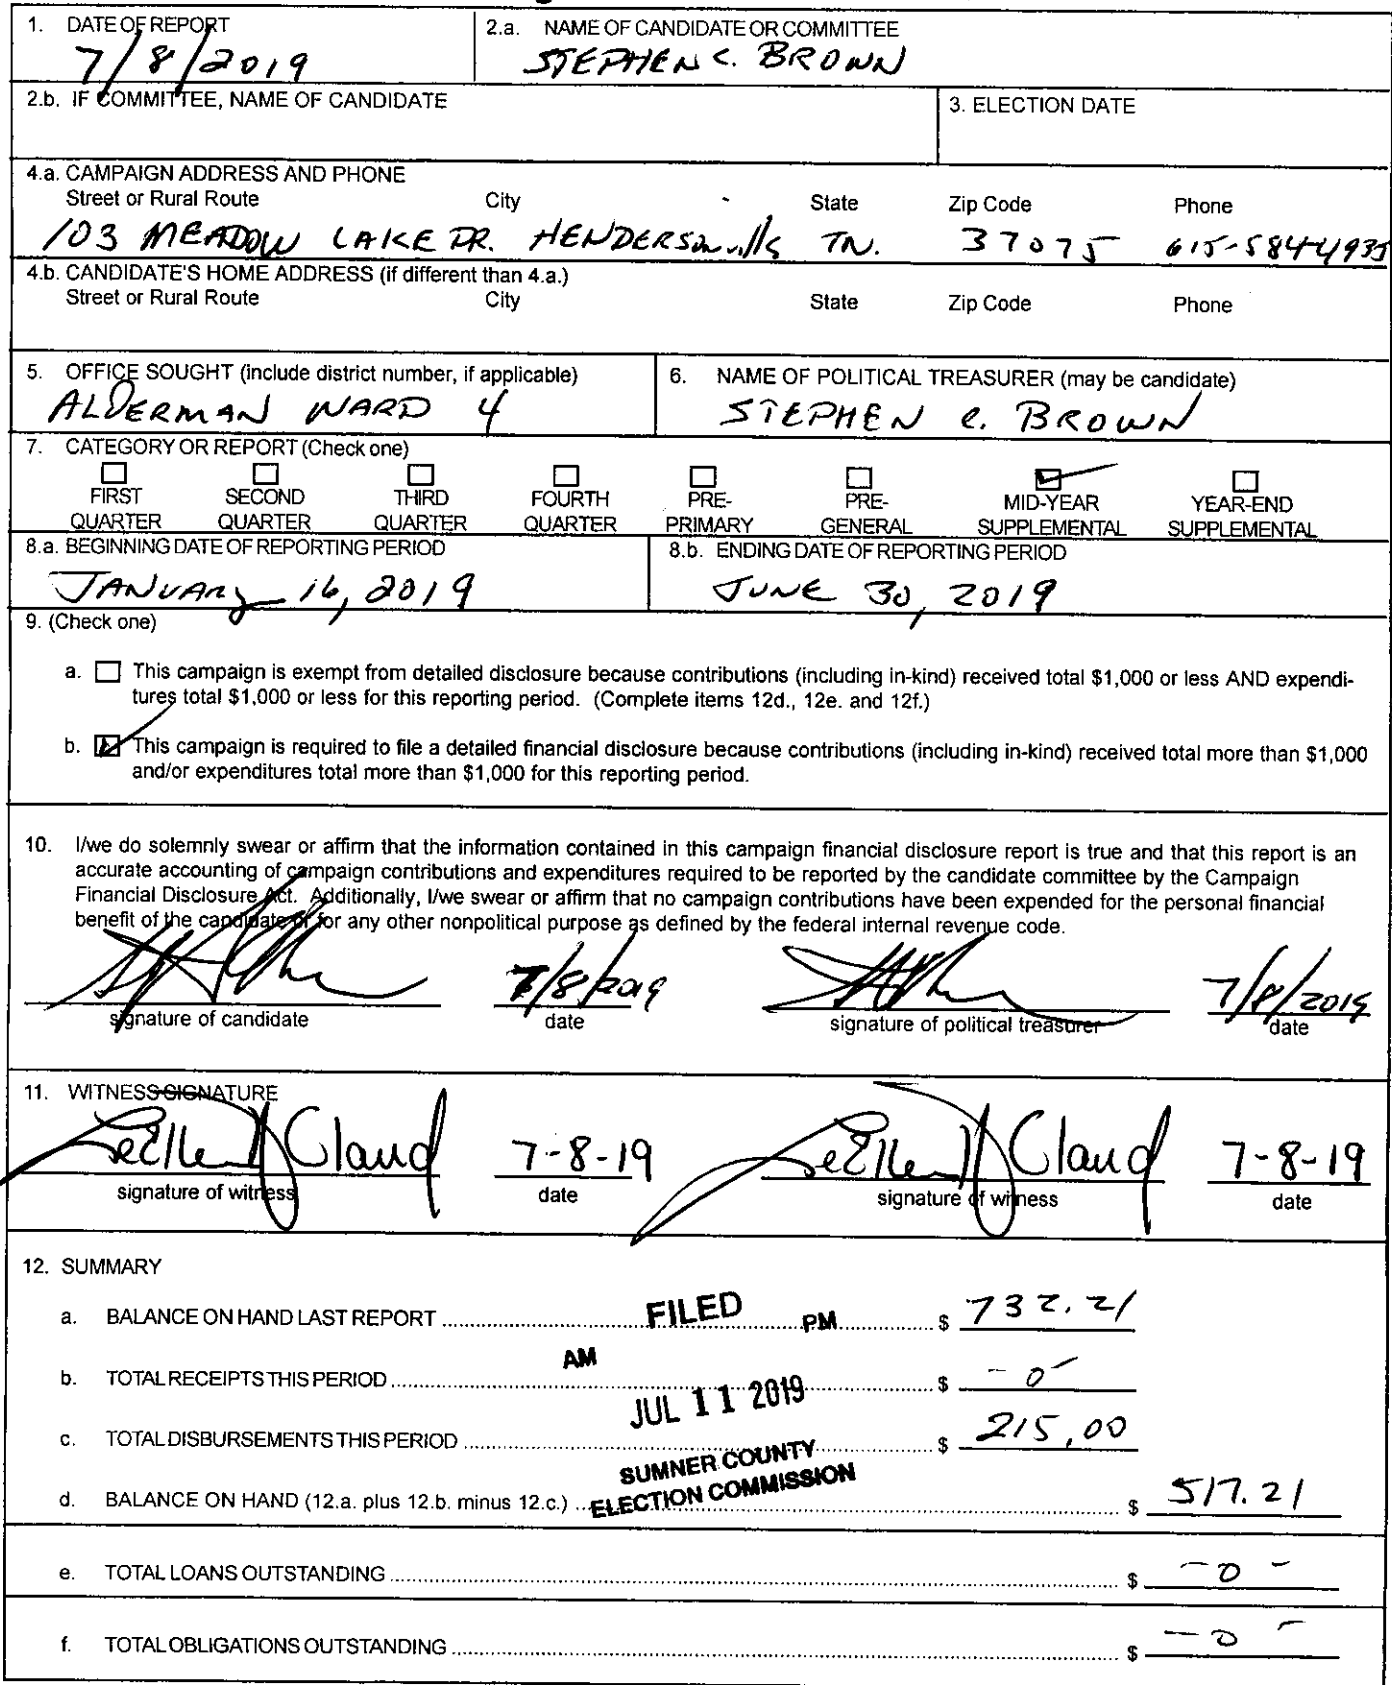 1. DATE OF REPORT
7/8/2019
2.a. NAME OF CANDIDATE OR COMMITTEE
STEPHEN C. BROWN
2.b. IF COMMITTEE, NAME OF CANDIDATE
3. ELECTION DATE
4.a. CAMPAIGN ADDRESS AND PHONE
Street or Rural Route City State Zip Code Phone
103 MEADOW LAKE DR. HENDERSONville TN. 37075 615-584-4935
4.b. CANDIDATE'S HOME ADDRESS (if different than 4.a.)
Street or Rural Route City State Zip Code Phone
5. OFFICE SOUGHT (include district number, if applicable)
ALDERMAN WARD 4
6. NAME OF POLITICAL TREASURER (may be candidate)
STEPHEN C. BROWN
7. CATEGORY OR REPORT (Check one)
FIRST QUARTER
SECOND QUARTER
THIRD QUARTER
FOURTH QUARTER
PRE-PRIMARY
PRE-GENERAL
MID-YEAR SUPPLEMENTAL
YEAR-END SUPPLEMENTAL
8.a. BEGINNING DATE OF REPORTING PERIOD
JANUARY 16, 2019
8.b. ENDING DATE OF REPORTING PERIOD
JUNE 30, 2019
9. (Check one)
a. This campaign is exempt from detailed disclosure because contributions (including in-kind) received total $1,000 or less AND expendi-
tures total $1,000 or less for this reporting period. (Complete items 12d., 12e. and 12f.)
b. This campaign is required to file a detailed financial disclosure because contributions (including in-kind) received total more than $1,000
and/or expenditures total more than $1,000 for this reporting period.
10. I/we do solemnly swear or affirm that the information contained in this campaign financial disclosure report is true and that this report is an
accurate accounting of campaign contributions and expenditures required to be reported by the candidate committee by the Campaign
Financial Disclosure Act. Additionally, I/we swear or affirm that no campaign contributions have been expended for the personal financial
benefit of the candidate or for any other nonpolitical purpose as defined by the federal internal revenue code.
7/8/2019 7/8/2019
signature of candidate date signature of political treasurer date
11. WITNESS SIGNATURE
Cloud 7-8-19 Cloud 7-8-19
signature of witness date signature of witness date
12. SUMMARY
a. BALANCE ON HAND LAST REPORT $ 732.21
FILED PM
AM
b. TOTAL RECEIPTS THIS PERIOD $ -0-
JUL 11 2019
c. TOTAL DISBURSEMENTS THIS PERIOD $ 215.00
SUMNER COUNTY
ELECTION COMMISSION
d. BALANCE ON HAND (12.a. plus 12.b. minus 12.c.) $ 517.21
e. TOTAL LOANS OUTSTANDING $ -0-
f. TOTAL OBLIGATIONS OUTSTANDING $ -0-